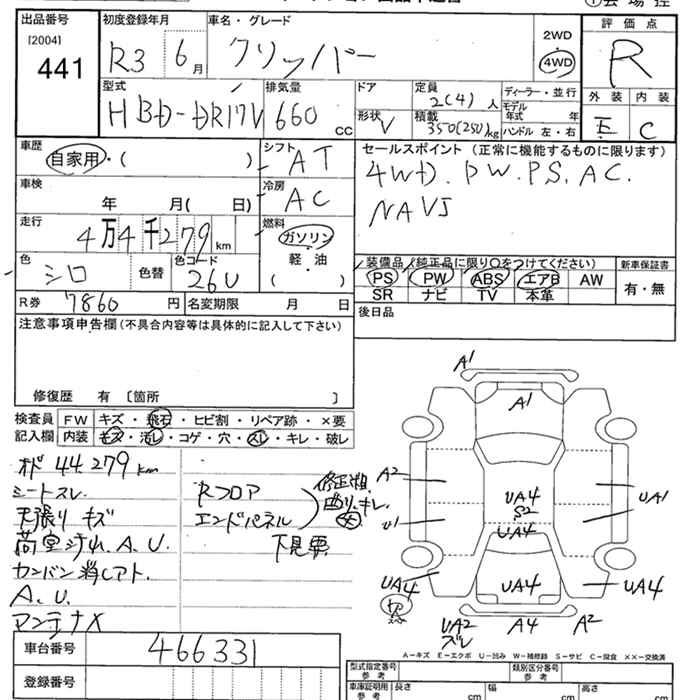 出品番号
[2004]
441
初度登録年月
R3 6月
車名・グレード
クリッパー
2WD
4WD
評価点
R
型式
HBD-DR17V
排気量
660 cc
ドア
形状 V
定員
2(4)人
積載
350(250)kg
ディーラー・並行
モデル年式 年
ハンドル 左・右
外装 内装
E C
車歴
自家用・( )
シフト
AT
車検
年 月( 日)
冷房
AC
走行
4万4千279km
燃料
ガソリン
軽・油
( )
色
シロ
色替
色コード
26U
R券 7860円
名変期限 月 日
セールスポイント(正常に機能するものに限ります)
4WD. PW. PS. AC.
NAVI
装備品(純正品に限り○をつけてください)
新車保証書
PS PW ABS エアB AW
SR ナビ TV 本革
有・無
後日品
注意事項申告欄(不具合内容等は具体的に記入して下さい)
修復歴 有 [箇所 ]
検査員記入欄
FW キズ・飛石・ヒビ割・リペア跡・×要
内装 キズ・汚レ・コゲ・穴・スレ・キレ・破レ
オド 44279km
シートスレ
天張り キズ
荷室 A.U.
カンバン消しアト.
A.U.
アンテナX
Rフロア
エンドパネル
下見要
A1
A1
A2
U1
UA4
S2
UA4
UA1
UA4
UA4
UA4
UA2
ズレ
A4
A2
A-キズ E-エクボ U-凹み W-補修跡 S-サビ C-腐食 XX-交換済
車台番号
466331
登録番号
型式指定番号
参考
類別区分番号
参考
車庫証明用
参考
長さ cm
幅 cm
高さ cm